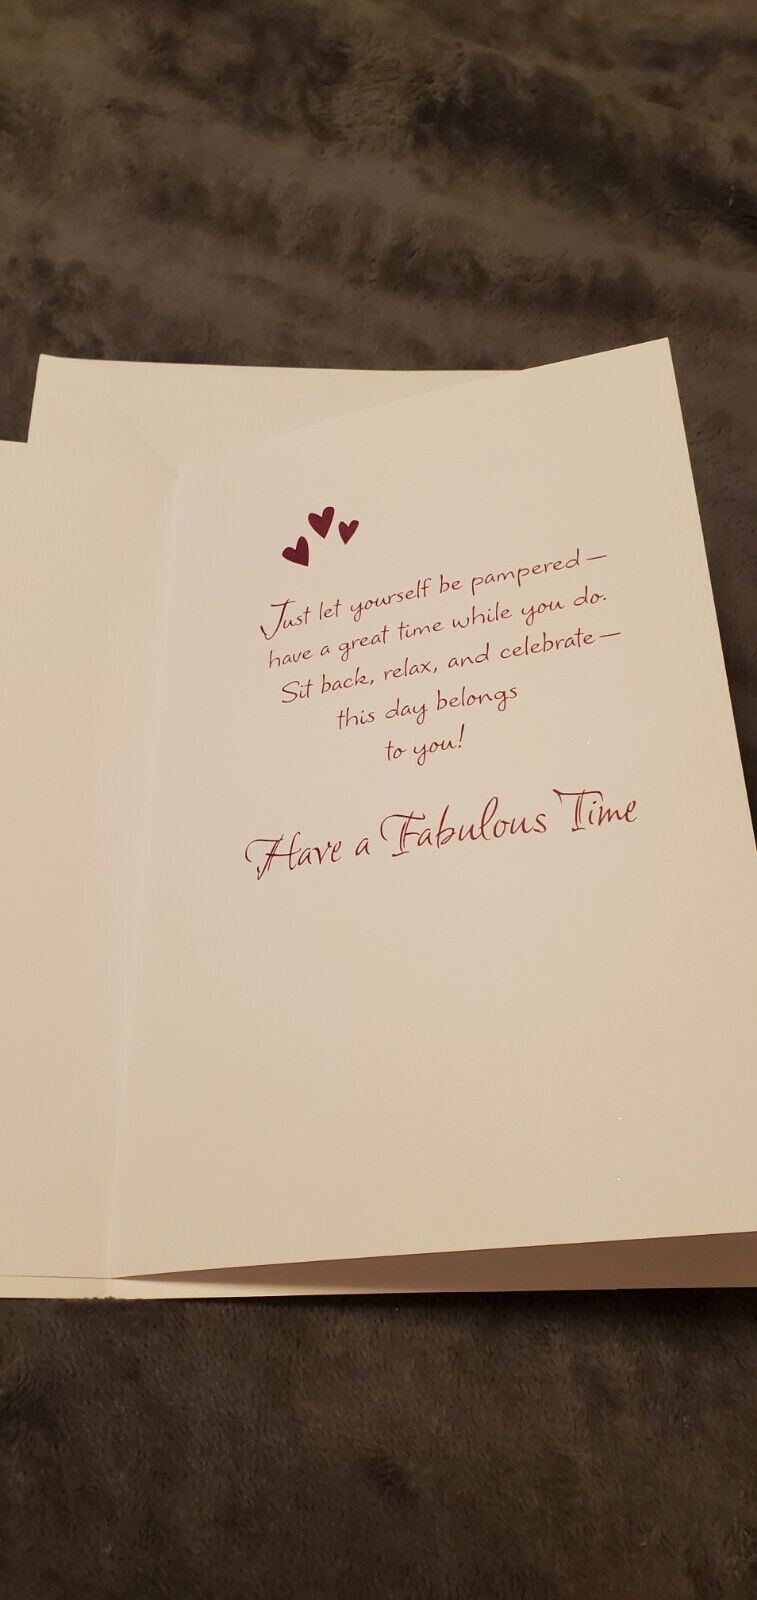 Just let yourself be pampered—
have a great time while you do.
Sit back, relax, and celebrate—
this day belongs
to you!
Have a Fabulous Time